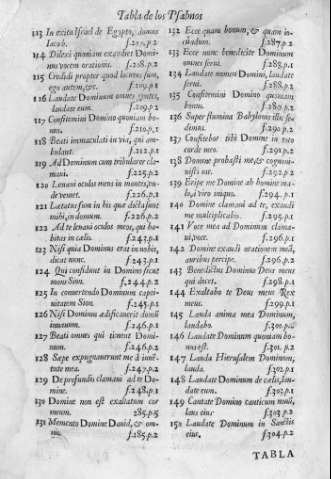 Tabla de los Psalmos
113 In exitu Israel de Egypto, domus
Iacob. f.207.p.2
114 Dilexi quoniam exaudiet Domi-
nus vocem orationis. f.208.p.2
115 Credidi propter quod locutus sum,
ego autem, &c. f.209.p.1
116 Laudate Dominum omnes gentes,
laudate eum. f.209.p.2
117 Confitemini Domino quoniam bo-
nus. f.210.p.1
118 Beati immaculati in via, qui am-
bulant. f.212.p.1
119 Ad Dominum cum tribularer cla-
maui. f.225.p.2
120 Leuaui oculos meos in montes, vn-
de veniet. f.226.p.1
121 Lætatus sum in his quæ dicta sunt
mihi, in domum. f.226.p.2
122 Ad te leuaui oculos meos, qui ha-
bitas in cælis. f.243.p.1
123 Nisi quia Dominus erat in nobis,
dicat nunc. f.243.p.1
124 Qui confidunt in Domino sicut
mons Sion. f.244.p.2
125 In conuertendo Dominus capti-
uitatem Sion. f.245.p.1
126 Nisi Dominus ædificauerit domũ
inuanum. f.246.p.1
127 Beati omnes qui timent Domi-
num. f.246.p.2
128 Sæpe expugnauerunt me à iuuē-
tute mea. f.247.p.2
129 De profundis clamaui ad te Do-
mine. f.248.p.1
130 Domine non est exaltatum cor
meum. 285.p.5
131 Memento Domine Dauid, & om-
nis. f.285.p.2
132 Ecce quam bonum, & quam in-
cũdum. f.287.p.2
133 Ecce nunc benedicite Dominum
omnes serui. f.288.p.1
134 Laudate nomen Domini, laudate
serui. f.288.p.2
135 Confitemini Domino quoniam
bonus. f.289.p.2
136 Super flumina Babylonis illic se-
dimus. f.290.p.2
137 Confitebor tibi Domine in toto
corde meo. f.291.p.2
138 Domine probasti me, & cognoui-
sti me. f.292.p.2
139 Eripe me Domine ab homine ma-
lo, à viro iniquo. f.294.p.1
140 Domine clamaui ad te, exaudi
me multiplicabis f.295.p.1
141 Voce mea ad Dominum clama-
ui, voce. f.296.p.1
142 Domine exaudi orationem meã,
auribus percipe. f.296.p.2
143 Benedictus Dominus Deus meus
qui docet. f.298.p.1
144 Exaltabo te Deus meus Rex
meus. f.299.p.1
145 Lauda anima mea Dominum,
laudabo. f.301.p.
146 Laudate Dominum quoniam bo-
nus est. f.301.p.2
147 Lauda Hierusalem Dominum,
lauda. f.302.p.1
148 Laudate Dominum de cælis, lau-
date eum. f.302.p.1
149 Cantate Domino canticum nouũ,
laus eius f.303.p.2
150 Laudate Dominum in Sanctis
eius. f.304.p.2
TABLA